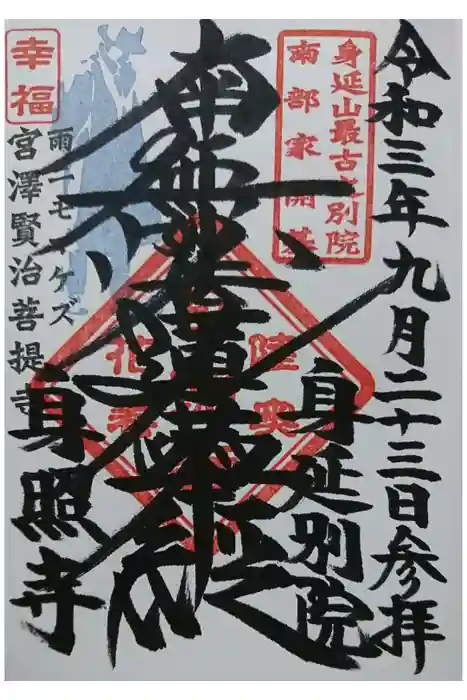 令和三年九月二十三日参拝
身延山最古之別院
南部家開基
身延別院
南無妙法蓮華経
幸福
雨ニモマケズ
宮澤賢治菩提寺
身照寺